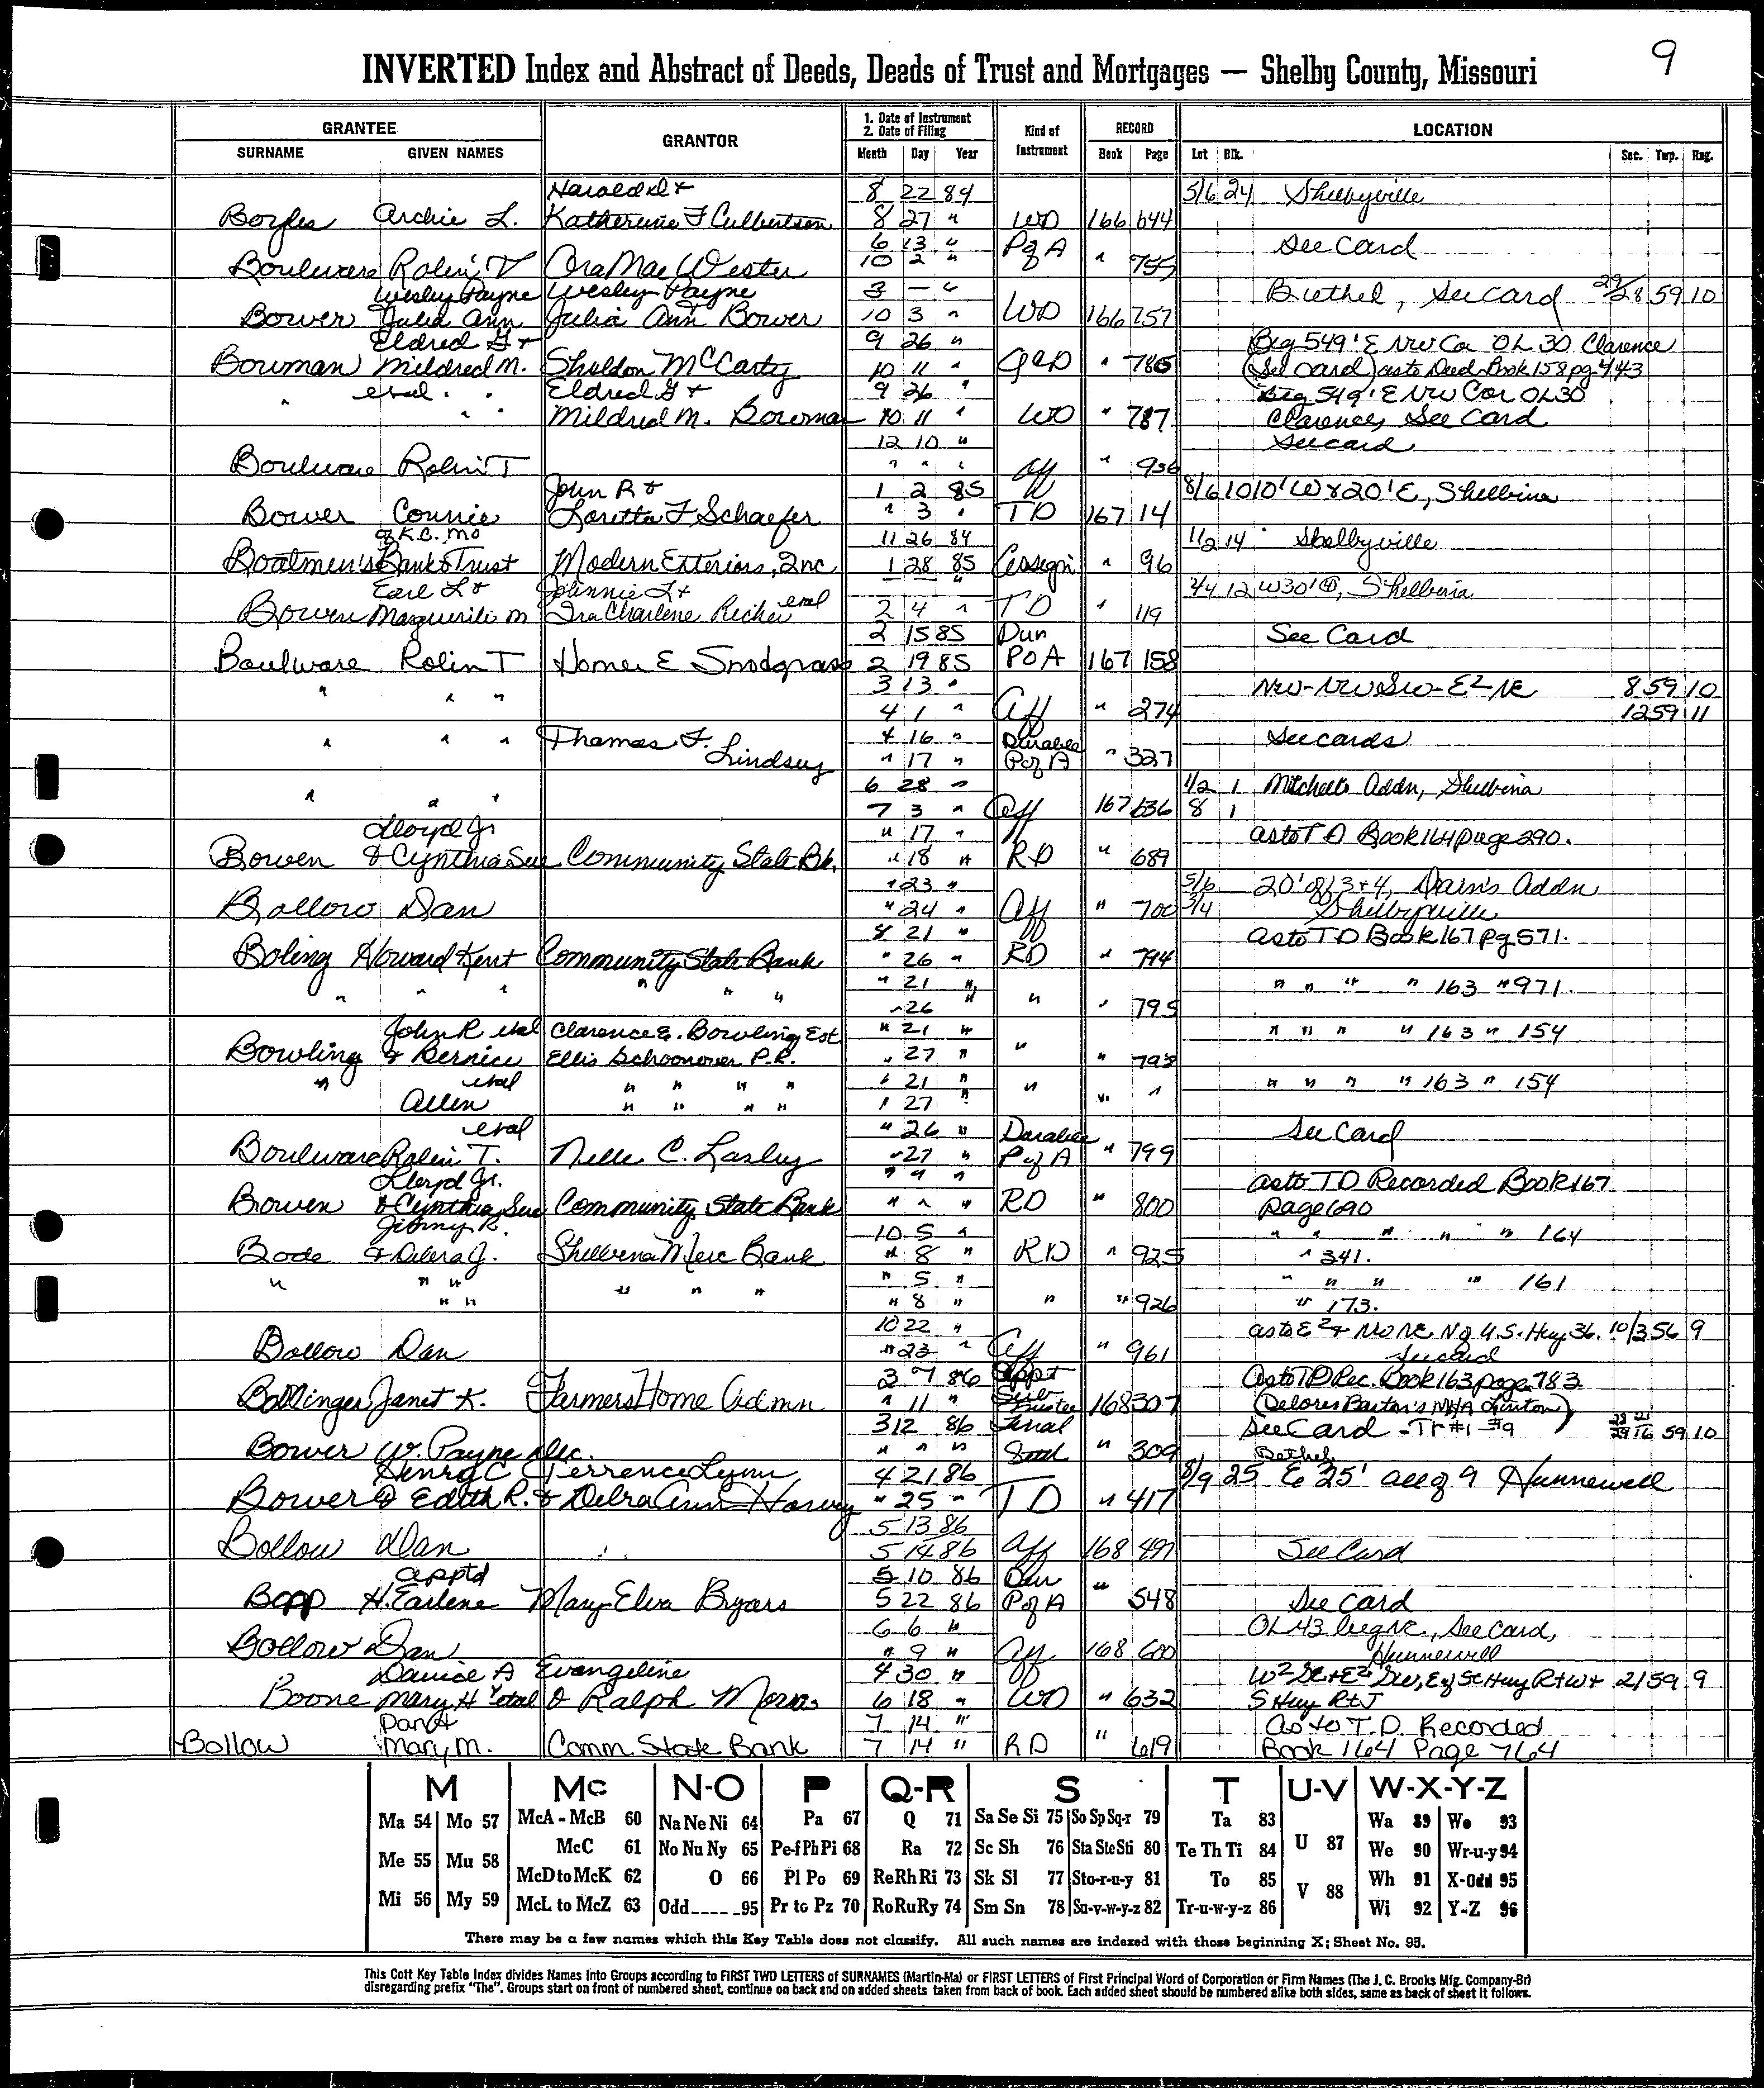 9
INVERTED Index and Abstract of Deeds, Deeds of Trust and Mortgages — Shelby County, Missouri
GRANTEE GRANTOR 1. Date of Instrument 2. Date of Filing Kind of Instrument RECORD LOCATION
SURNAME GIVEN NAMES Month Day Year Book Page Lot Blk. Sec. Twp. Rng.
Harold D + 8 22 84 5/6 24 Shelbyville
Boyles Archie L. Katherine F Culbertson 8 27 " WD 166 644
6 13 " P of A See Card
Boulware Rolin T Ora Mae Wester 10 2 " " 755
Wesley Payne Wesley Payne 3 — " Bethel, See Card 29/28 59 10
Bower Julia Ann Julia Ann Bower 10 3 " WD 166 757
Eldred G + 9 26 " Beg 549' E NW Cor OL 30 Clarence
Bowman Mildred M. Sheldon McCarty 10 11 " QCD " 786 (See Card) as to Deed Book 158 pg 943
" etal " " Eldred G + 9 26 " Beg 549' E NW Cor OL 30
" " Mildred M. Bowman 10 11 " WD " 787 Clarence, See Card
12 10 " See card
Boulware Rolin T " " " Aff " 936
John R + 1 2 85 8/6 10 10' W & 20' E, Shelbina
Bower Connie Loretta F Schaefer " 3 " TD 167 14
of K.C. Mo 11 26 84 1/2 14 Shelbyville
Boatmen's Bank & Trust Modern Exteriors, Inc 1 28 85 Assign " 96
Earl L + Johnnie L + " 3/4 12 W30' 4, Shelbina
Bowen Marguerite M Ira Charlene Richer etal 2 4 " TD " 119
2 15 85 Dur See Card
Boulware Rolin T Homer E Snodgrass 2 19 85 POA 167 158
" " " 3 13 " NW-NW SW-E2-NE 8 59 10
4 1 " Aff " 274 12 59 11
" " " Thomas F. 4 16 " Durable See cards
Lindsey " 17 " P of A " 327
6 28 " 1/2 1 Mitchells Addn, Shelbina
" " " 7 3 " Aff 167 636 8 1
Lloyd Jr " 17 " as to T D Book 164 page 290.
Bowen & Cynthia Sue Community State Bk. " 18 " RD " 689
" 23 " 5/6 20' of 3+4, Dain's Addn
Bollow Dan " 24 " Aff " 700 3/4 Shelbyville
8 21 " as to T D Book 167 pg 571.
Boling Howard Kent Community State Bank " 26 " RD " 794
" " " " " " " 21 " " " " " 163 " 971.
" 26 " " " 795
John R etal Clarence E. Bowling Est " 21 " " " " " 163 " 154
Bowling & Bernice Ellis Schoonover P.R. " 27 " " " 798
" etal " " " " " 21 " " " " " " 163 " 154
Allen " " " " " 27 " " "
etal " 26 " Durable See Card
Boulware Rolin T. Nelle C. Lasley " 27 " P of A " 799
Lloyd Jr. " " " as to TD Recorded Book 167
Bowen & Cynthia Sue Community State Bank " " " RD " 800 page 690
Jimmy R. 10 5 " " " " " " 164
Bode & Debra J. Shelbina Merc Bank " 8 " RD " 925 " 341.
" " " " " " " 5 " " " " " 161
" " " 8 " " " 926 " 173.
10 22 " as to E2 + NW NE N of U.S. Hwy 36. 10/3 56 9
Bollow Dan " 23 " Aff " 961 See card
3 7 86 Appt As to TD Rec. Book 163 page 783
Ballinger Janet K. Farmers Home Admn " 11 " Sub Trustee 168 307 (Delores Barton's N/H/A Linton)
3 12 86 Final See Card - Tr #1 #9 59 10
Bower W. Payne Dec. " " " " 309 Bethel
Henry C Terrence Lynn 4 21 86 8/9 25 E 25' all of 9 Hunnewell
Bower & Edith R. & Debra Ann Harvey " 25 " TD " 417
5 13 86
Bollow Dan 5 14 86 Aff 168 497 See Card
apptd 5 10 86 Dur
Bapp H. Earlene Mary Elva Byars 5 22 86 P of A " 548 See Card
6 6 " OL 43 beg NE, See Card,
Bollow Dan " 9 " Aff 168 600 Hunnewell
Daniel A Evangeline 4 30 " W2 SE + E2 SW, Ex SE Hwy R+W + 21 59 9
Boone Mary H etal & Ralph 6 18 " WD " 632 S Hwy R+J
Dan + 7 14 " As to T.D. Recorded
Bollow Mary M. Comm. State Bank 7 14 " RD " 619 Book 164 Page 764
M Mc N-O P Q-R S T U-V W-X-Y-Z
Ma 54 Mo 57 McA - McB 60 Na Ne Ni 64 Pa 67 Q 71 Sa Se Si 75 So Sp Sq-r 79 Ta 83 Wa 89 Wo 93
McC 61 No Nu Ny 65 Pe-f Ph Pi 68 Ra 72 Sc Sh 76 Sta Ste Sti 80 Te Th Ti 84 U 87 We 90 Wr-u-y 94
Me 55 Mu 58 McD to McK 62 O 66 Pl Po 69 Re Rh Ri 73 Sk Sl 77 Sto-r-u-y 81 To 85 Wh 91 X-Odd 95
Mi 56 My 59 McL to McZ 63 Odd 95 Pr to Pz 70 Ro Ru Ry 74 Sm Sn 78 Su-v-w-y-z 82 Tr-u-w-y-z 86 V 88 Wi 92 Y-Z 96
There may be a few names which this Key Table does not classify. All such names are indexed with those beginning X; Sheet No. 95.
This Cott Key Table Index divides Names into Groups according to FIRST TWO LETTERS of SURNAMES (Martin-Ma) or FIRST LETTERS of First Principal Word of Corporation or Firm Names (The J. C. Brooks Mfg. Company-Br)
disregarding prefix "The". Groups start on front of numbered sheet, continue on back and on added sheets taken from back of book. Each added sheet should be numbered alike both sides, same as back of sheet it follows.